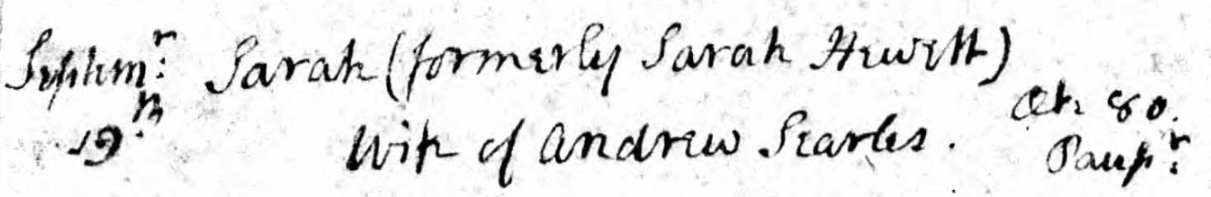 Septemr. Sarah (formerly Sarah Hewett)
19th. Wife of Andrew Searles. Æt. 80.
Paupr.